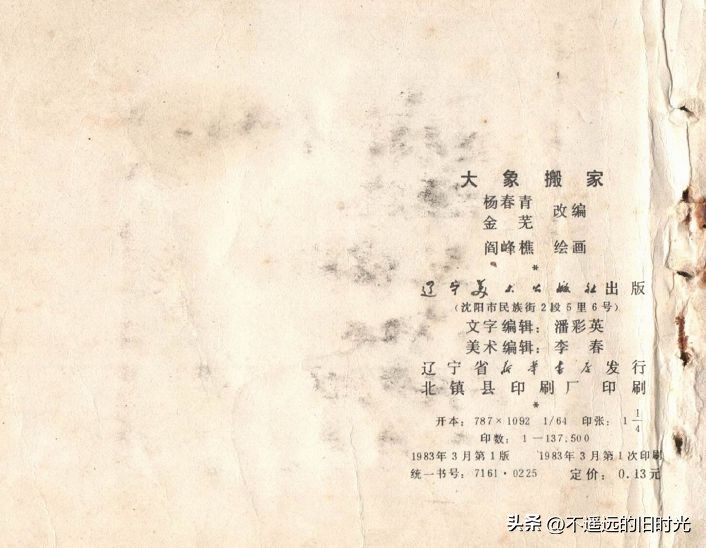 大象搬家
杨春青
金芜 改编
阎峰樵 绘画
*
辽宁美术出版社出版
(沈阳市民族街2段5里6号)
文字编辑：潘彩英
美术编辑：李春
辽宁省新华书店发行
北镇县印刷厂印刷
*
开本：787×1092 1/64 印张：1 1/4
印数：1—137.500
1983年3月第1版 1983年3月第1次印刷
统一书号：7161·0225 定价：0.13元
头条 @不遥远的旧时光